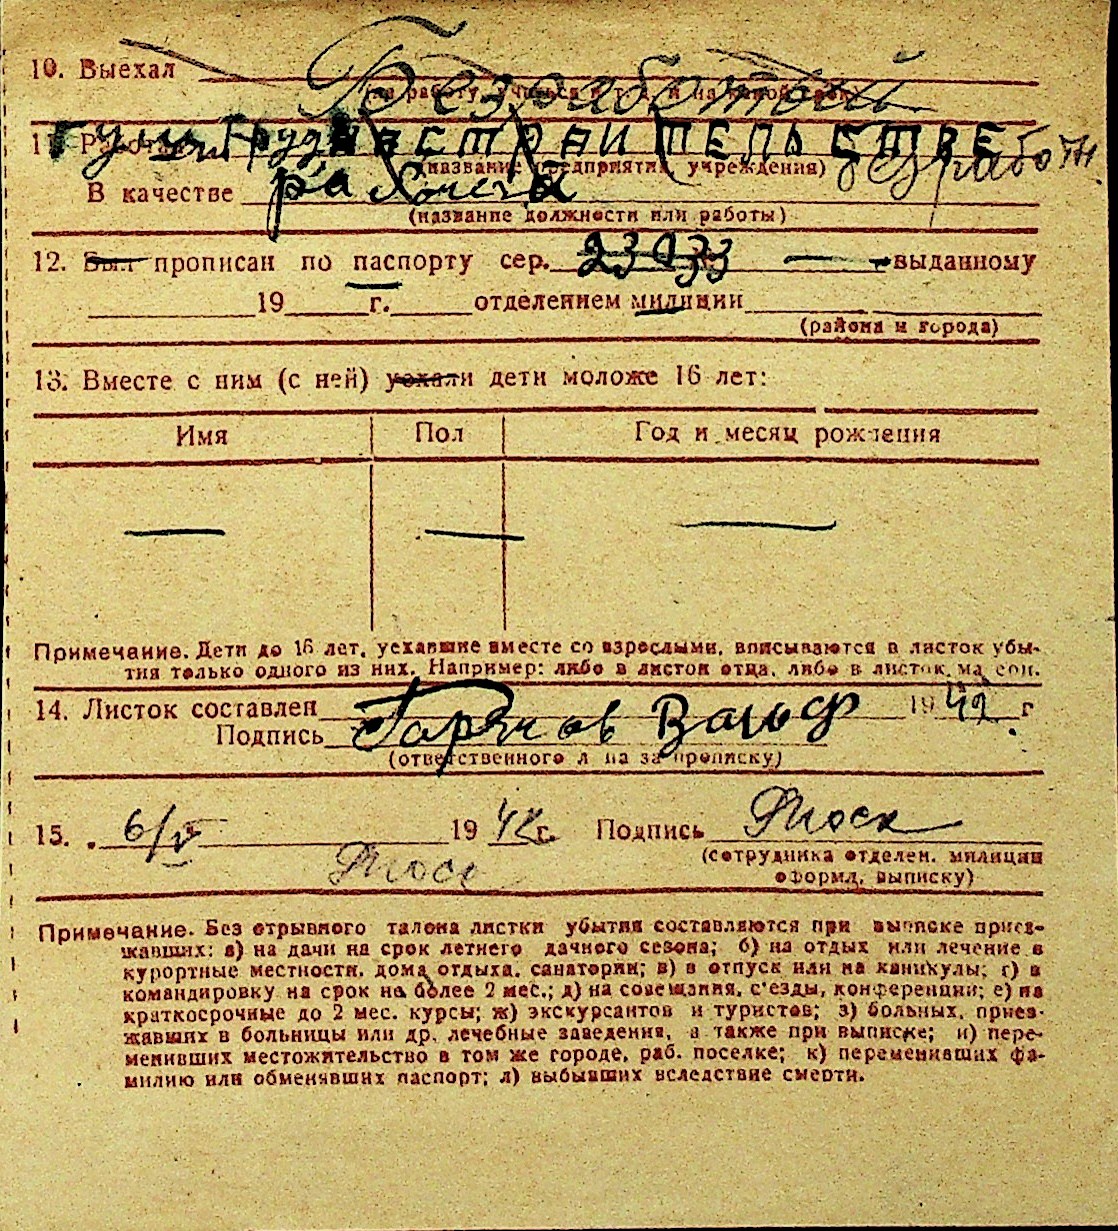 10. Выехал Безработный
(на работу, учиться и т. д. и на какой срок)
11. На строительстве
(название предприятия, учреждения) безработн
В качестве рабочего
(название должности или работы)
12. Был прописан по паспорту сер. 23933 выданному
19 г. отделением милиции
(района и города)
13. Вместе с ним (с ней) уехали дети моложе 16 лет:
Имя Пол Год и месяц рождения
— — —
Примечание. Дети до 16 лет, уехавшие вместе со взрослыми, вписываются в листок убы-
тия только одного из них. Например: либо в листок отца, либо в листок ма ери.
14. Листок составлен 1942 г
Подпись
(ответственного л ца за прописку)
15. 6/V 1942 г. Подпись
(сотрудника отделен. милиции
оформл. выписку)
Примечание. Без отрывного талона листки убытия составляются при выписке приез-
жавших: а) на дачи на срок летнего дачного сезона; б) на отдых или лечение в
курортные местности, дома отдыха, санатории; в) в отпуск или на каникулы; г) в
командировку на срок не более 2 мес.; д) на совещания, с'езды, конференции; е) на
краткосрочные до 2 мес. курсы; ж) экскурсантов и туристов; з) больных, приез-
жавших в больницы или др. лечебные заведения, а также при выписке; и) пере-
менивших местожительство в том же городе, раб. поселке; к) переменивших фа-
милию или обменявших паспорт; л) выбывших вследствие смерти.